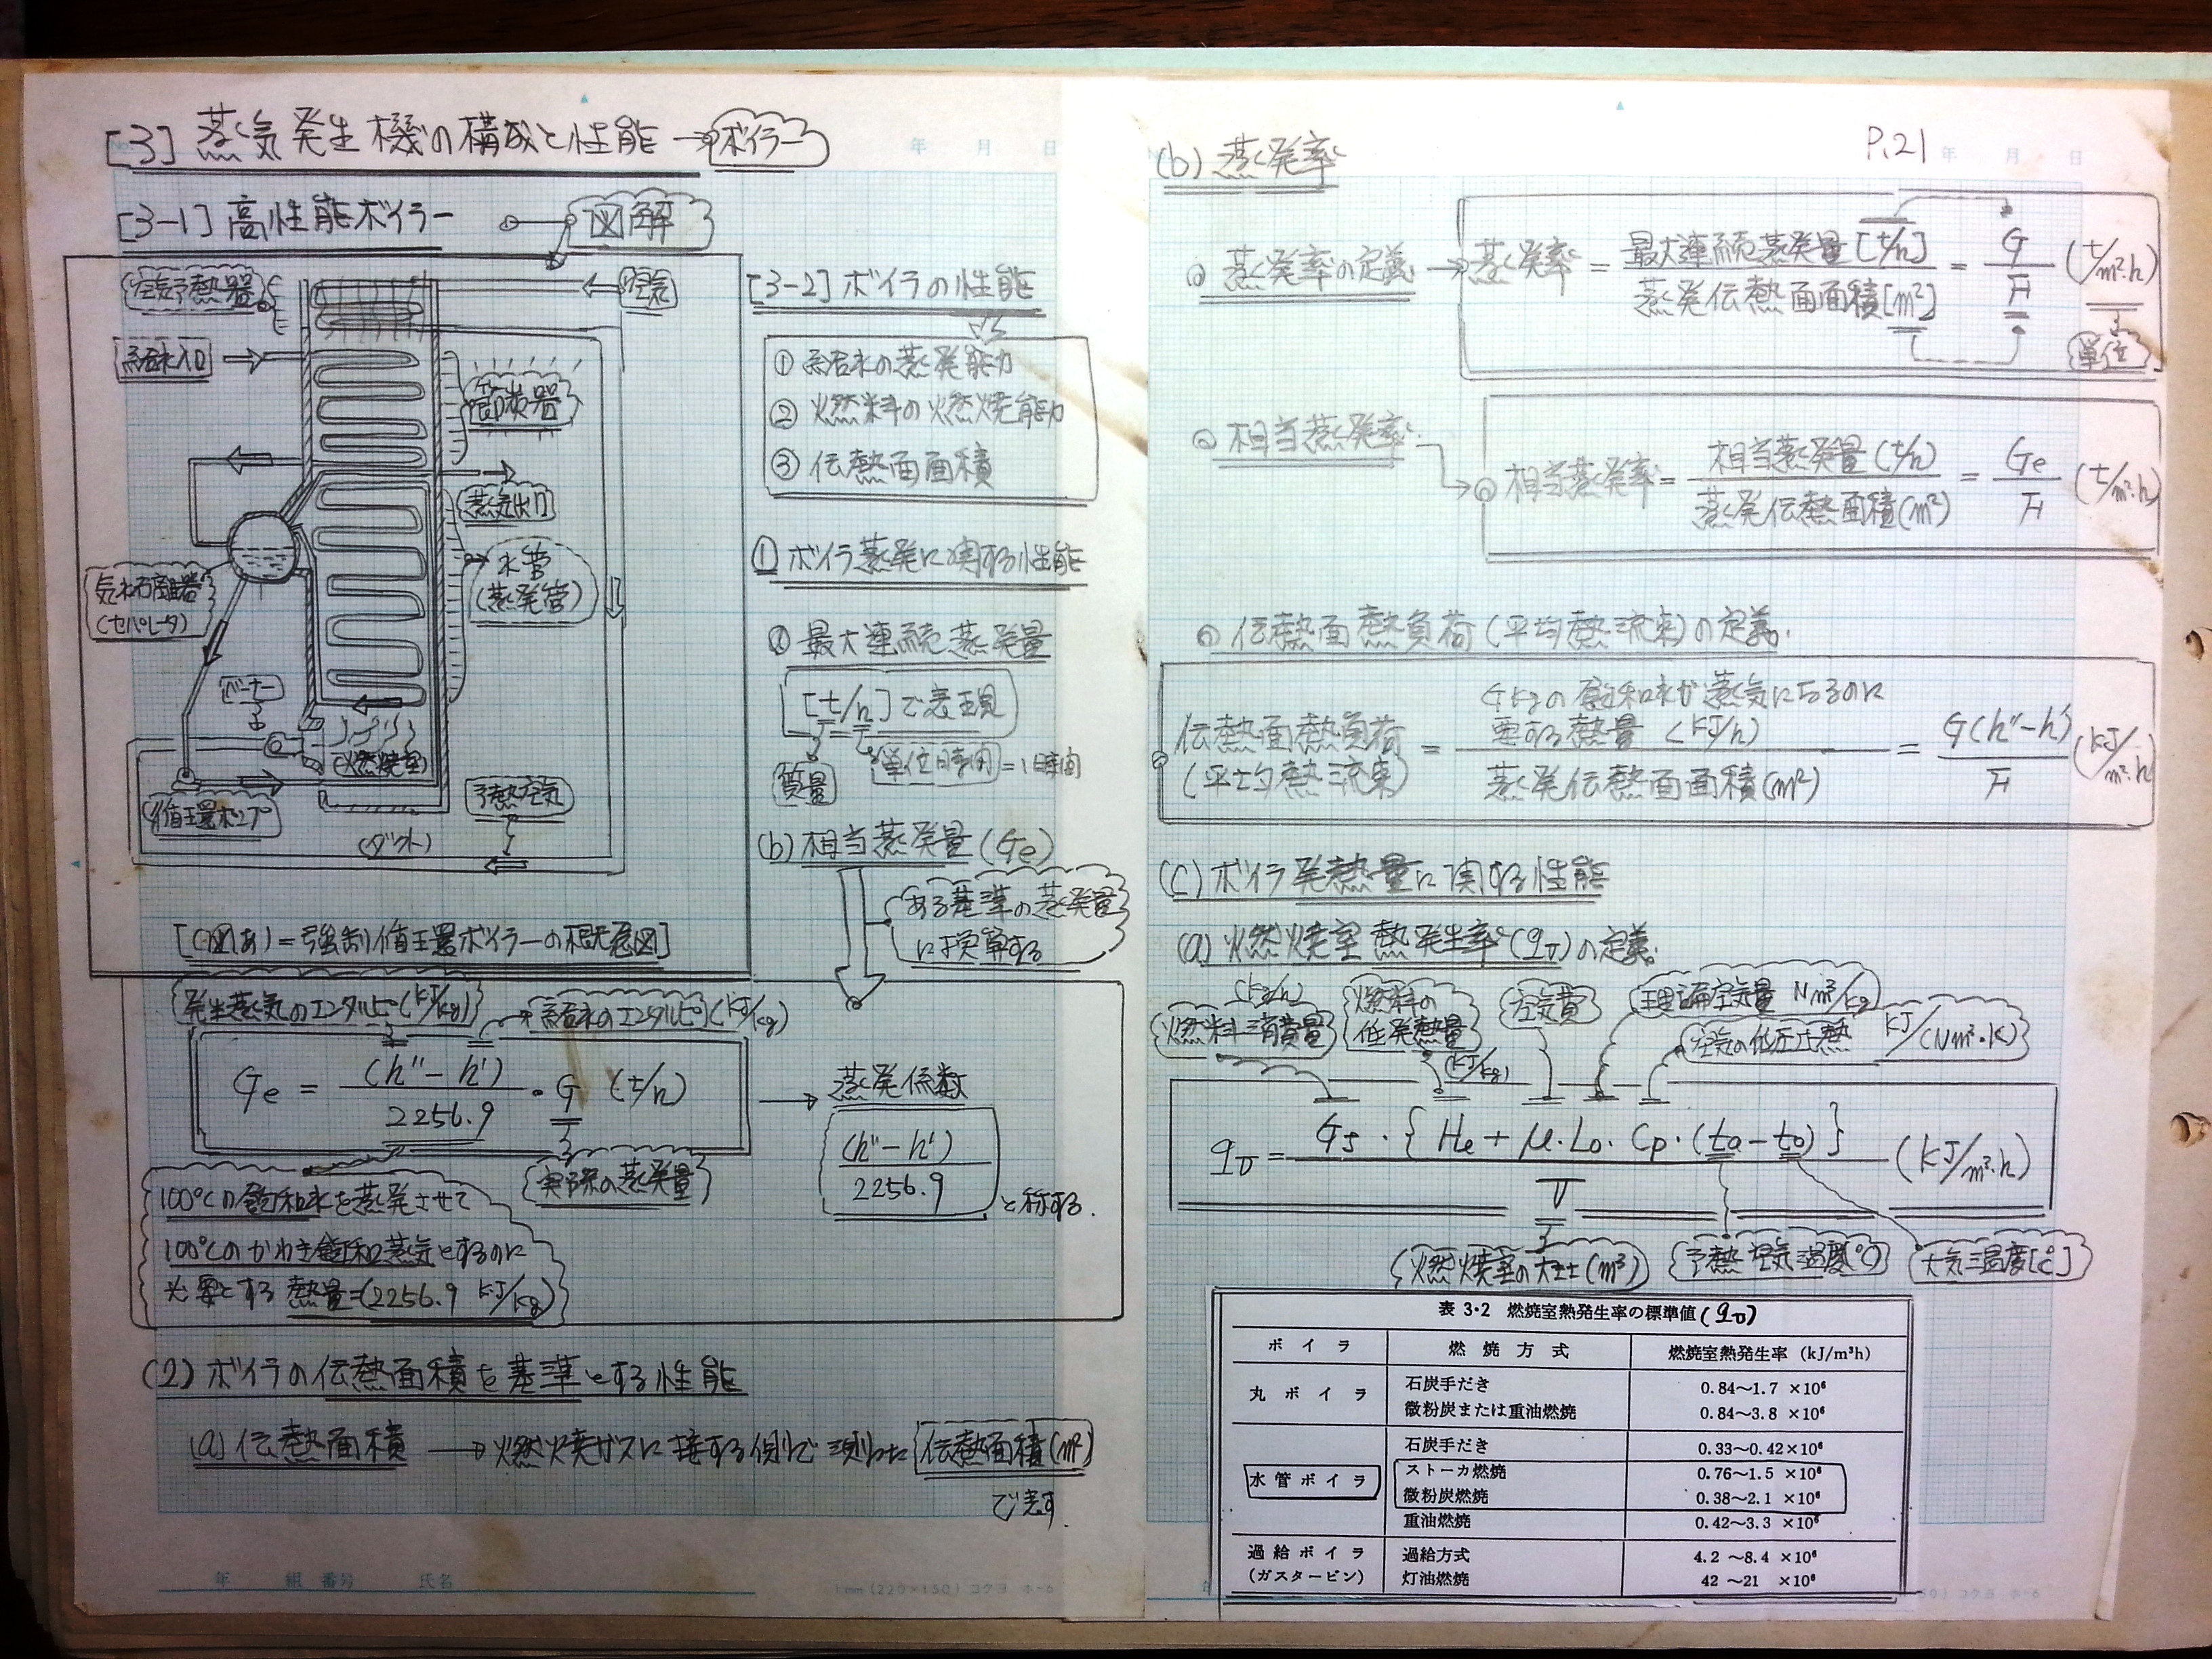 [3] 蒸気発生機の構成と性能 → ボイラー
[3-1] 高性能ボイラー
図解
空気予熱器
空気
給水入口
節炭器
蒸気出口
水管
(蒸発管)
気水分離器
(セパレータ)
バーナー
燃焼室
循環ポンプ
予熱空気
(ダクト)
[(図あ)=強制循環ボイラーの概念図]
[3-2] ボイラの性能
① 給水の蒸発能力
② 燃料の燃焼能力
③ 伝熱面面積
① ボイラ蒸発に関する性能
最大連続蒸発量
[t/h]で表現
質量
単位時間=1時間
(b) 相当蒸発量(Ge)
ある基準の蒸発量
に換算する
発生蒸気のエンタルピ(kJ/kg)
給水のエンタルピ(kJ/kg)
Ge = (h''-h')/2256.9 ・ G (t/h)
実際の蒸発量
→ 蒸発係数
(h''-h')/2256.9
と称する.
100℃の飽和水を蒸発させて
100℃のかわき飽和蒸気とするのに
必要とする熱量=(2256.9 kJ/kg)
(2) ボイラの伝熱面積を基準とする性能
(a) 伝熱面積 → 燃焼ガスに接する側で測った伝熱面積(m²)
で表す.
年 組 番号 氏名
1mm (220×150) コクヨ ホ-6
年 月 日
P.21
年 月 日
(b) 蒸発率
蒸発率の定義 → 蒸発率 = 最大連続蒸発量[t/h]/蒸発伝熱面面積[m²] = G/F (t/m²·h)
単位
相当蒸発率
相当蒸発率 = 相当蒸発量(t/h)/蒸発伝熱面積(m²) = Ge/F (t/m²·h)
伝熱面熱負荷(平均熱流束)の定義.
伝熱面熱負荷
(平均熱流束)
= Gkgの飽和水が蒸気になるのに
要する熱量 (kJ/h)
/蒸発伝熱面面積(m²)
= G(h''-h')/F (kJ/m²·h)
(c) ボイラ発熱量に関する性能
(a) 燃焼室熱発生率(qv)の定義.
(kg/h)
燃料消費量
燃料の
低発熱量
(kJ/kg)
空気費
理論空気量 Nm³/kg
空気の低圧比熱 kJ/(Nm³·K)
qv = Gf・{He+μ・Lo・Cp・(ta-to)}/V (kJ/m²·h)
燃焼室の大きさ(m³)
予熱空気温度(℃)
大気温度[℃]
表 3・2 燃焼室熱発生率の標準値(qv)
ボイラ 燃焼方式 燃焼室熱発生率 (kJ/m³h)
丸ボイラ 石炭手だき 0.84~1.7 ×10⁶
微粉炭または重油燃焼 0.84~3.8 ×10⁶
石炭手だき 0.33~0.42×10⁶
水管ボイラ ストーカ燃焼 0.76~1.5 ×10⁶
微粉炭燃焼 0.38~2.1 ×10⁶
重油燃焼 0.42~3.3 ×10⁶
過給ボイラ 過給方式 4.2 ~8.4 ×10⁶
(ガスタービン) 灯油燃焼 42 ~21 ×10⁶
コクヨ ホ-6